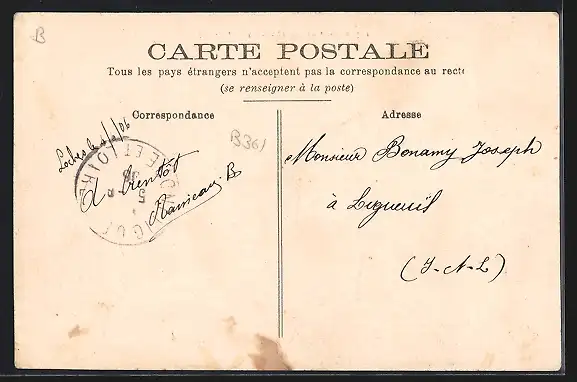 B
CARTE POSTALE
Tous les pays étrangers n'acceptent pas la correspondance au recto
(se renseigner à la poste)
Correspondance
Adresse
B361
Loches le
a bientôt
B
ET LOIRE
Monsieur Bonamy Joseph
à Ligueuil
(I-&-L)